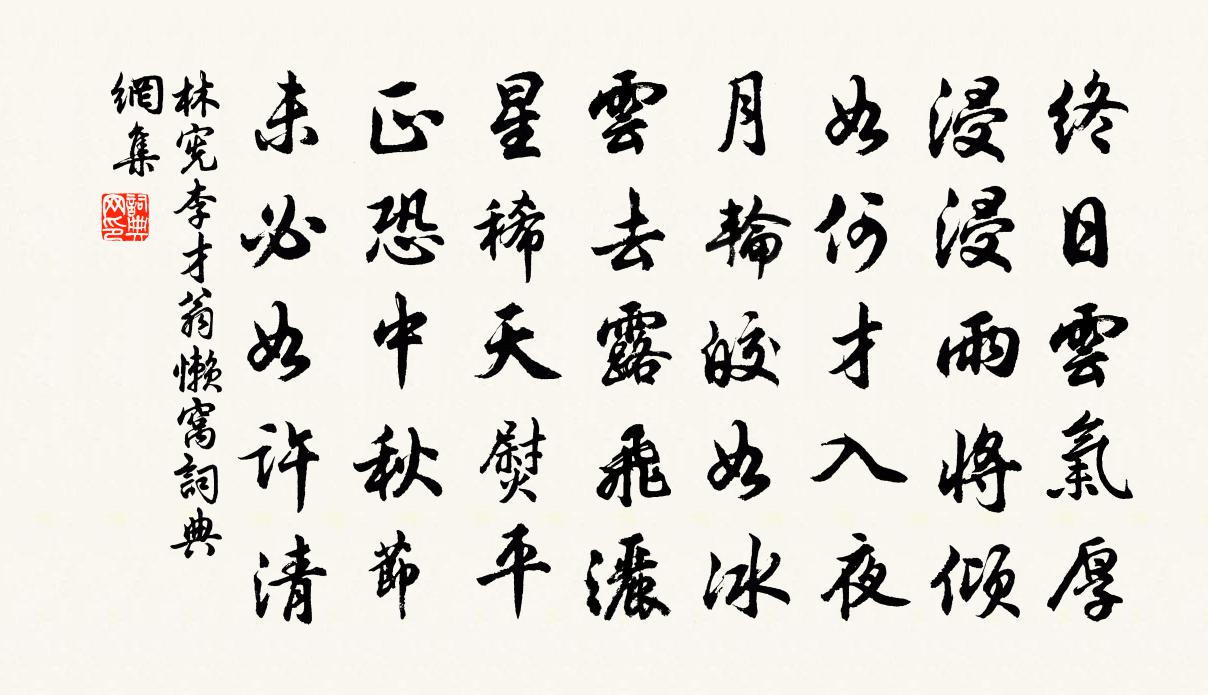 終日雲氣厚
浸浸雨將傾
如何才入夜
月輪皎如冰
雲去露飛灑
星稀天熨平
正恐中秋節
未必如許清
林宪李才翁懶窩詞典
網集
詞典
网印